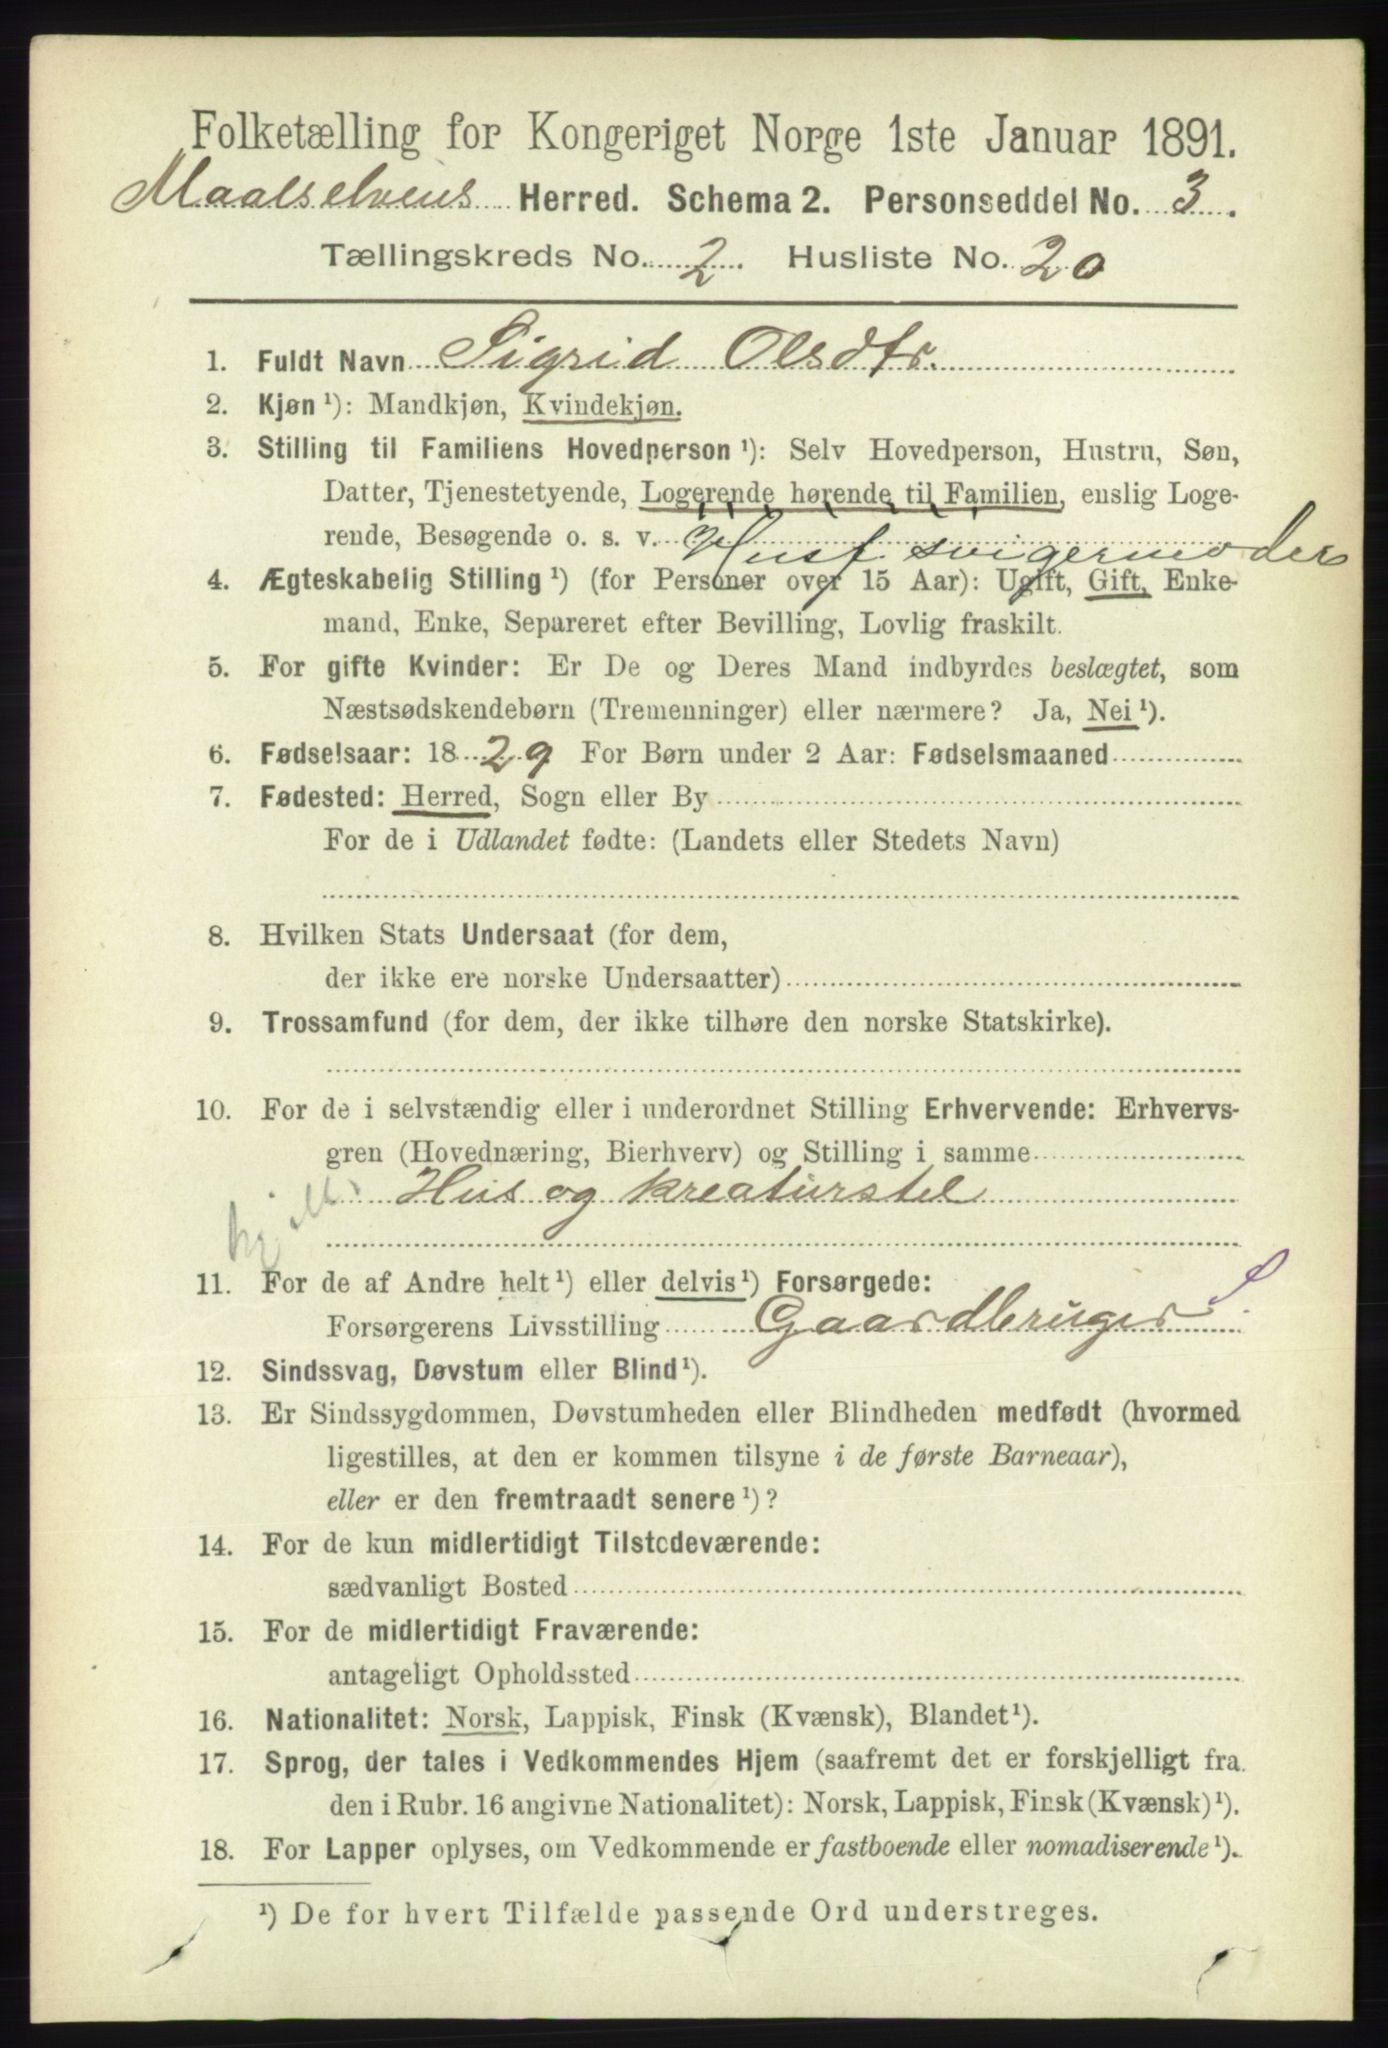 Folketælling for Kongeriget Norge 1ste Januar 1891.
Maalselvens Herred. Schema 2. Personseddel No. 3.
Tællingskreds No. 2. Husliste No. 20
1. Fuldt Navn Sigrid Olsdtr.
2. Kjøn ¹): Mandkjøn, Kvindekjøn.
3. Stilling til Familiens Hovedperson ¹): Selv Hovedperson, Hustru, Søn,
Datter, Tjenestetyende, Logerende hørende til Familien, enslig Loge-
rende, Besøgende o. s. v. Husf svigermoder
4. Ægteskabelig Stilling ¹) (for Personer over 15 Aar): Ugift, Gift, Enke-
mand, Enke, Separeret efter Bevilling, Lovlig fraskilt.
5. For gifte Kvinder: Er De og Deres Mand indbyrdes beslægtet, som
Næstsødskendebørn (Tremenninger) eller nærmere? Ja, Nei ¹).
6. Fødselsaar: 1829 For Børn under 2 Aar: Fødselsmaaned
7. Fødested: Herred, Sogn eller By
For de i Udlandet fødte: (Landets eller Stedets Navn)
8. Hvilken Stats Undersaat (for dem,
der ikke ere norske Undersaatter)
9. Trossamfund (for dem, der ikke tilhøre den norske Statskirke).
10. For de i selvstændig eller i underordnet Stilling Erhvervende: Erhvervs-
gren (Hovednæring, Bierhverv) og Stilling i samme
Hus og kreaturstel
11. For de af Andre helt ¹) eller delvis ¹) Forsørgede:
Forsørgerens Livsstilling Gaardbruger S.
12. Sindssvag, Døvstum eller Blind ¹).
13. Er Sindssygdommen, Døvstumheden eller Blindheden medfødt (hvormed
ligestilles, at den er kommen tilsyne i de første Barneaar),
eller er den fremtraadt senere ¹)?
14. For de kun midlertidigt Tilstedeværende:
sædvanligt Bosted
15. For de midlertidigt Fraværende:
antageligt Opholdssted
16. Nationalitet: Norsk, Lappisk, Finsk (Kvænsk), Blandet ¹).
17. Sprog, der tales i Vedkommendes Hjem (saafremt det er forskjelligt fra
den i Rubr. 16 angivne Nationalitet): Norsk, Lappisk, Finsk (Kvænsk) ¹).
18. For Lapper oplyses, om Vedkommende er fastboende eller nomadiserende ¹).
¹) De for hvert Tilfælde passende Ord understreges.